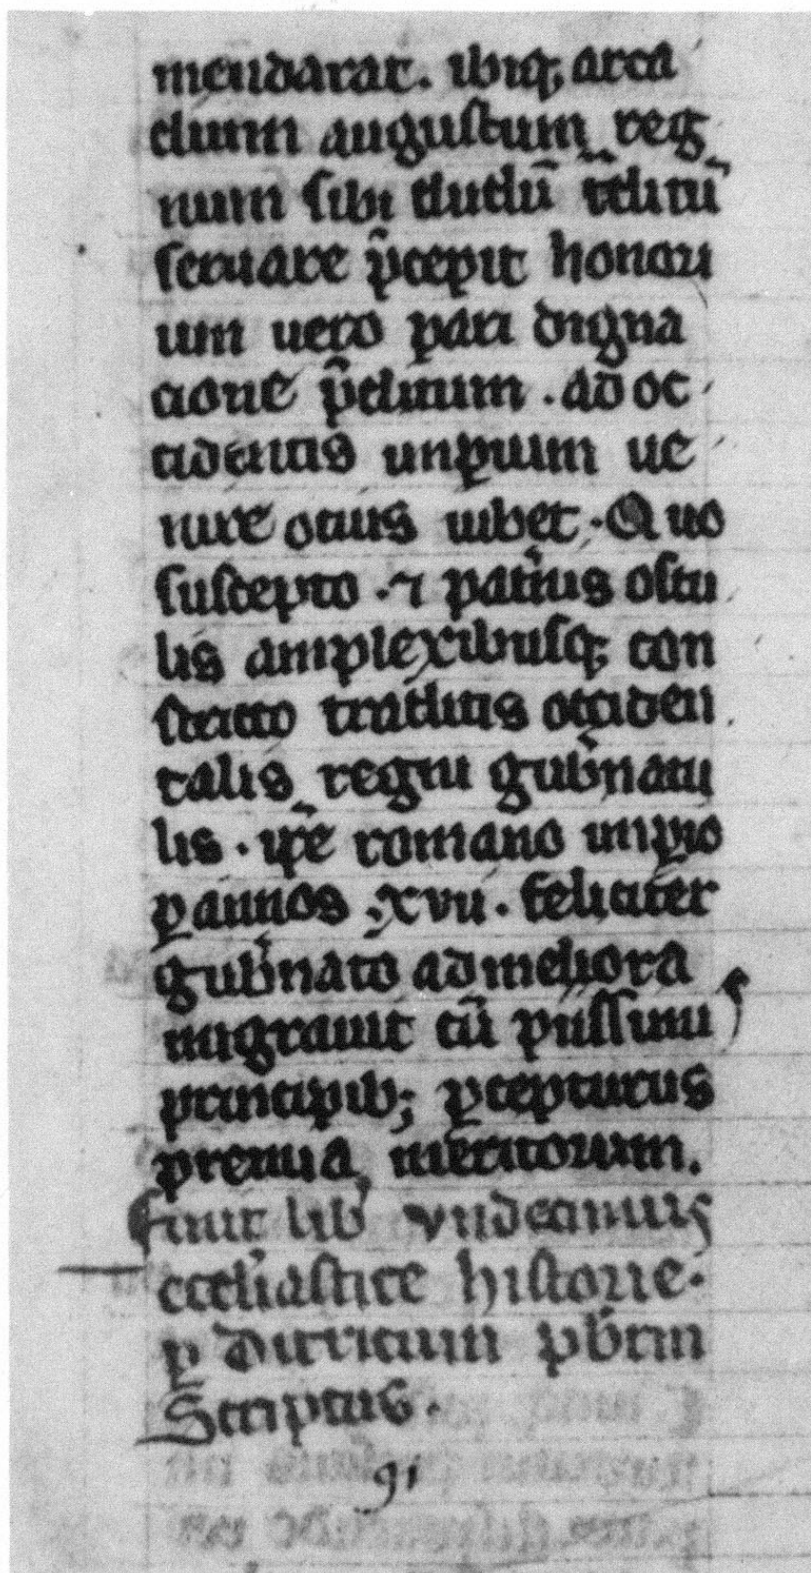 mendarat. ibiq; arca
dium augustum reg
num sibi dudū t̃ditū
seruare p̃cepit honori
um uero pari digna
cione p̃ditum . ad oc
cidentis imꝑium ue
nire ocius iubet . Quo
suscepto . ⁊ pat̃nis oscu
lis amplexibusq; con
stricto traditis occiden
talis regni gub̃nacu
lis . ip̃e romano imꝑio
ꝑ annos . xvii . feliciter
gub̃nato ad meliora
migrauit cū piissimis
principib; ꝑcepturus
premia meritorum.
Finit lib̃ vndecimus
eccl̃iastice historie .
ꝑ Ditricum pb̃rm
Scriptus .